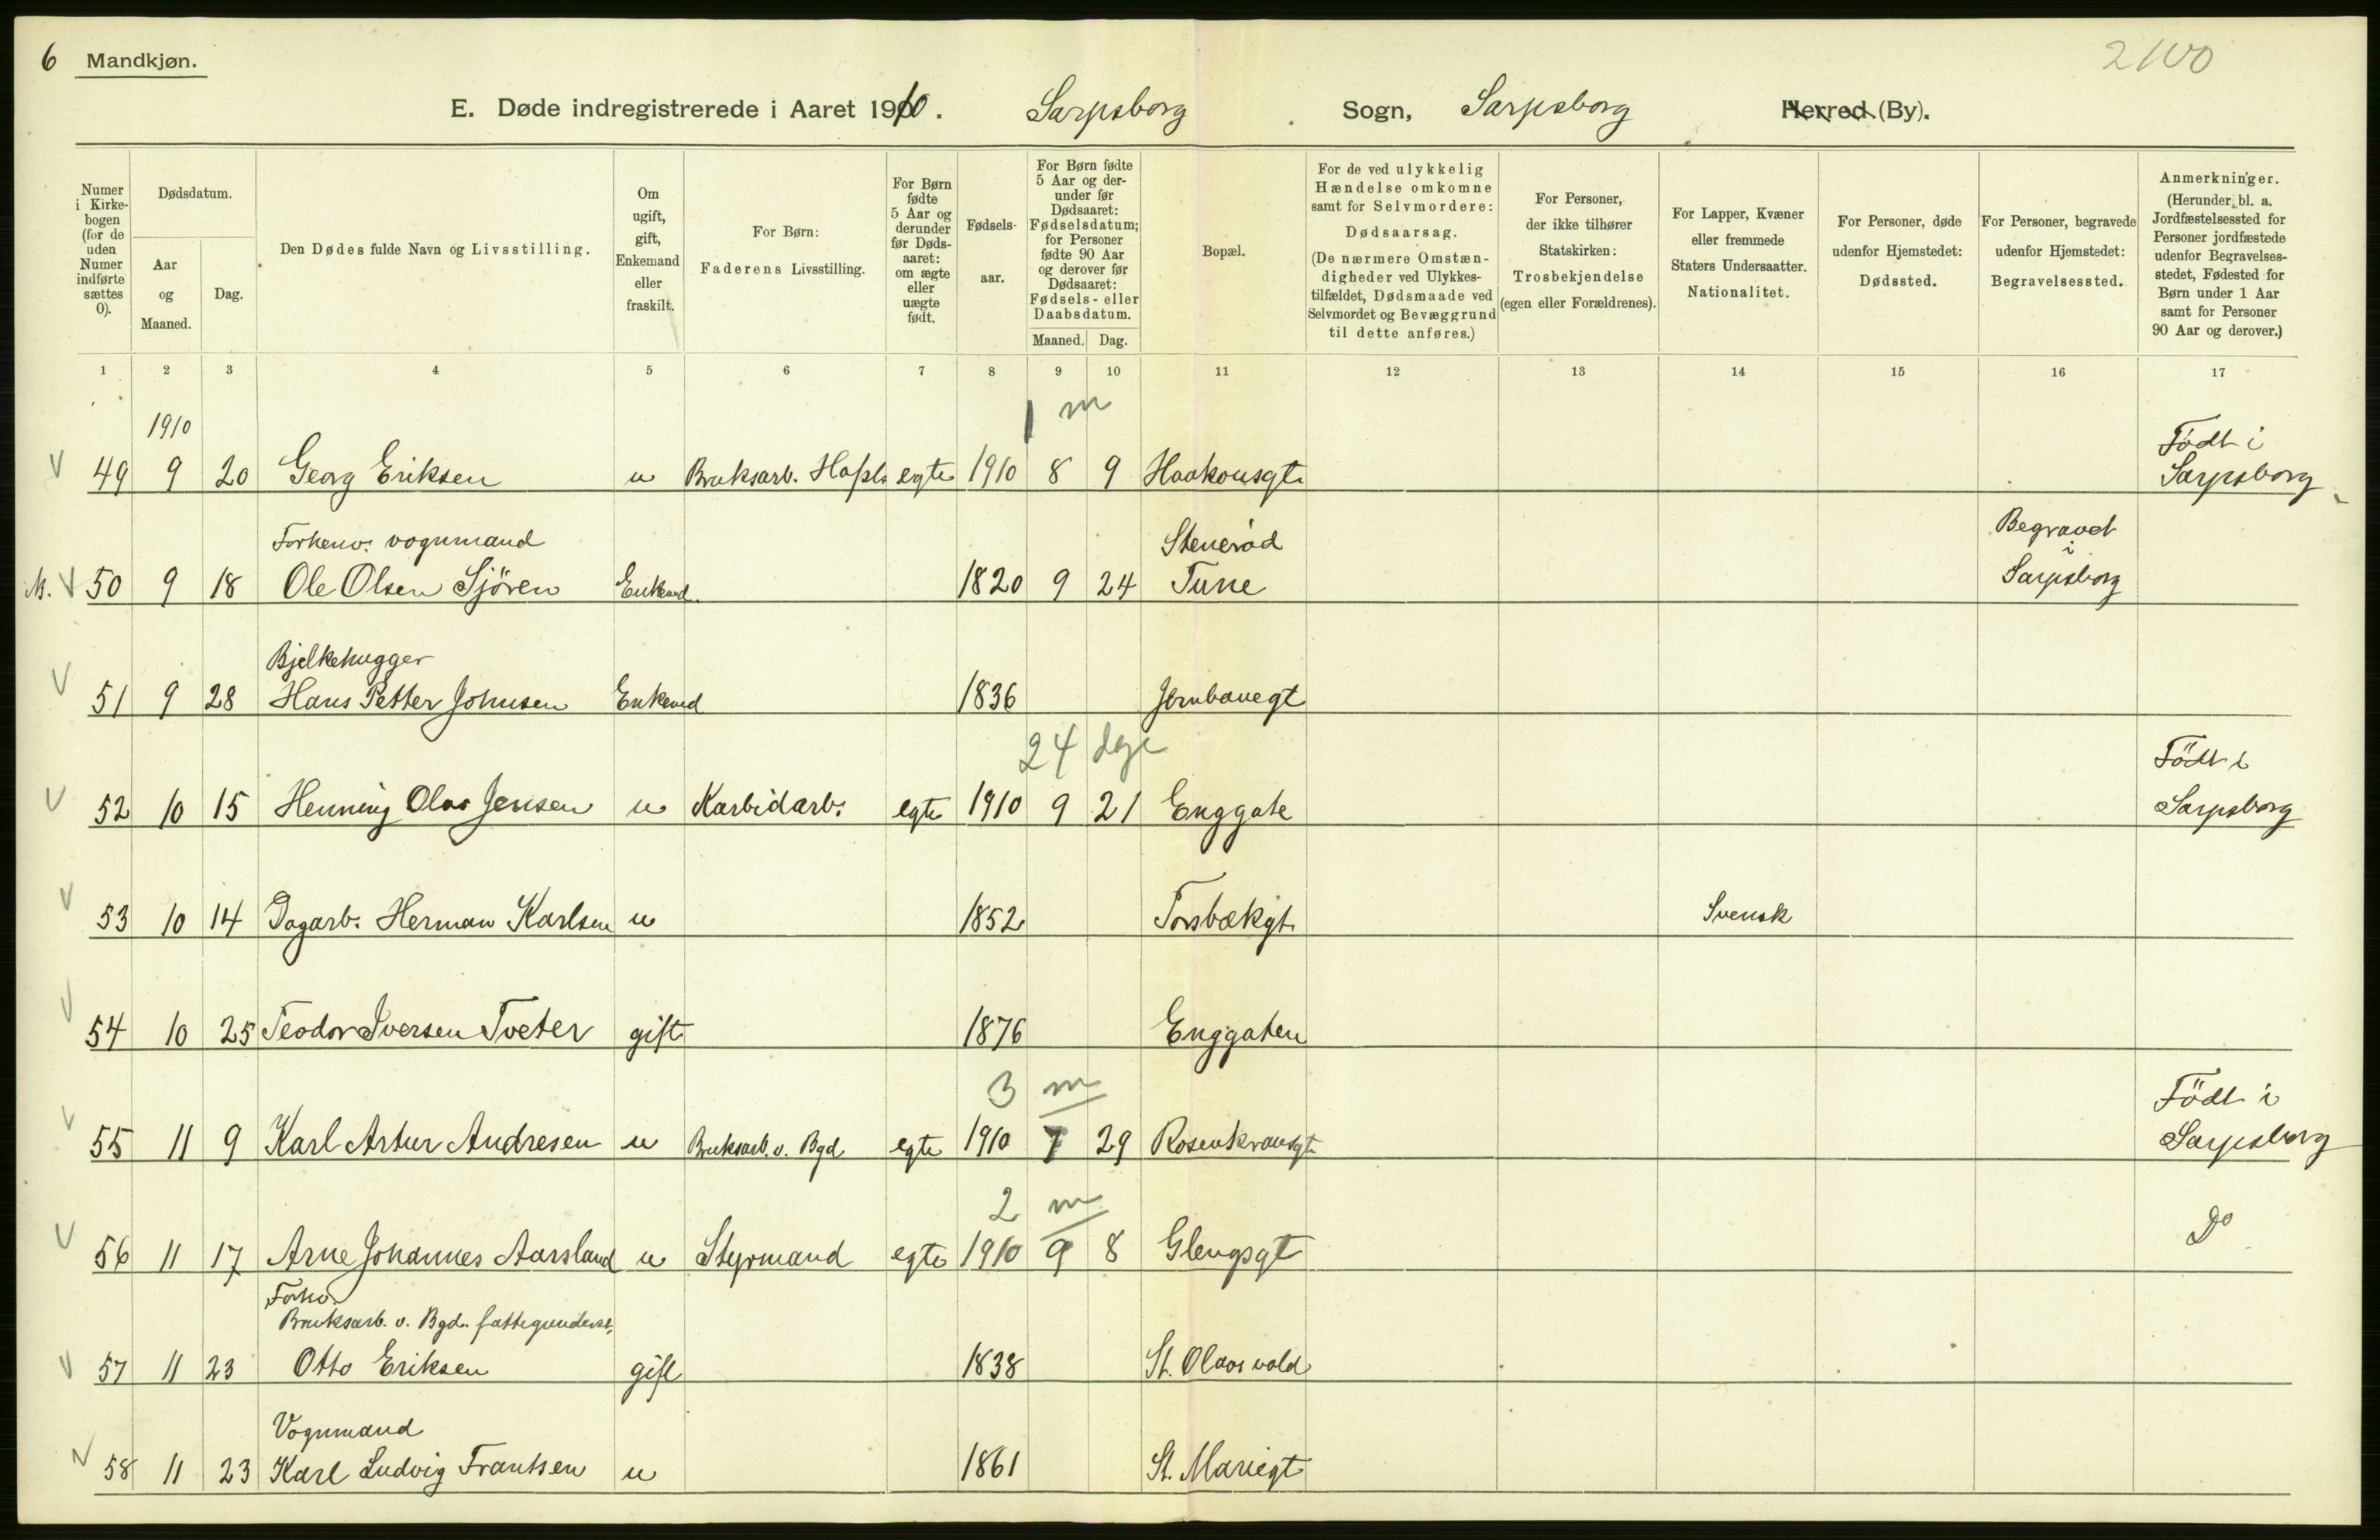 6 Mandkjøn.
2100
E. Døde indregistrerede i Aaret 1910. Sarpsborg Sogn, Sarpsborg Herred (By).
Numer i Kirke-bogen (for de uden Numer indførte sættes 0).
Dødsdatum.
Aar og Maaned.
Dag.
Den Dødes fulde Navn og Livsstilling.
Om ugift, gift, Enkemand eller fraskilt.
For Børn: Faderens Livsstilling.
For Børn fødte 5 Aar og derunder før Døds-aaret: om ægte eller uægte født.
Fødsels-aar.
For Børn fødte 5 Aar og der-under før Dødsaaret: Fødselsdatum; for Personer fødte 90 Aar og derover før Dødsaaret: Fødsels- eller Daabsdatum.
Maaned. Dag.
Bopæl.
For de ved ulykkelig Hændelse omkomne samt for Selvmordere: Dødsaarsag. (De nærmere Omstæn-digheder ved Ulykkes-tilfældet, Dødsmaade ved Selvmordet og Bevæggrund til dette anføres.)
For Personer, der ikke tilhører Statskirken: Trosbekjendelse (egen eller Forældrenes).
For Lapper, Kvæner eller fremmede Staters Undersaatter. Nationalitet.
For Personer, døde udenfor Hjemstedet: Dødssted.
For Personer, begravede udenfor Hjemstedet: Begravelsessted.
Anmerkninger. (Herunder bl. a. Jordfæstelsessted for Personer jordfæstede udenfor Begravelses-stedet, Fødested for Børn under 1 Aar samt for Personer 90 Aar og derover.)
1 2 3 4 5 6 7 8 9 10 11 12 13 14 15 16 17
1910
1 m
Födt i
49 9 20 Georg Eriksen u Bruksarb. Hafsl. egte 1910 8 9 Haakonsgt. Sarpsborg
Forhenv. vognmand Stenerød Begravet i
M. 50 9 18 Ole Olsen Sjören Enkemd. 1820 9 24 Tune Sarpsborg
Bjelkehugger
51 9 28 Hans Petter Johnsen Enkemd 1836 Jernbanegt
24 dge
Födt i
52 10 15 Henning Olav Jensen u Karbidarb. egte 1910 9 21 Enggate Sarpsborg
53 10 14 Dagarb. Herman Karlsen u 1852 Torsbækgt. Svensk
54 10 25 Teodor Iversen Tveter gift 1876 Enggaten
3 m
Födt i
55 11 9 Karl Artur Andresen u Bruksarb. v. Bgd egte 1910 7 29 Rosenkransgt. Sarpsborg
2 m
56 11 17 Arne Johannes Aarsland u Styrmand egte 1910 9 8 Glengsgt Do
Forhv.
Bruksarb. v. Bgd. fattigunderst.
57 11 23 Otto Eriksen gift 1838 St. Olavs vold
Vognmand
58 11 23 Karl Ludvig Frantsen u 1861 St. Mariegt